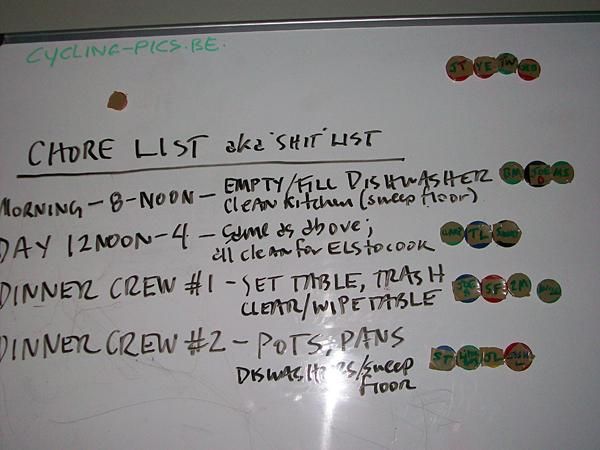 CYCLING-PICS.BE.
ST YE TW
CHORE LIST aka "SHIT" LIST
MORNING - 8-NOON - EMPTY/FILL DISHWASHER
CLEAN KITCHEN (SWEEP FLOOR)
BM JOE D MS
DAY 12NOON-4 - Same as above;
all clean for ELS to cook
TL
DINNER CREW #1 - SET TABLE, TRASH
CLEAR/WIPE TABLE
JOE SF ZM
DINNER CREW #2 - POTS, PANS
DISWASHERS/sweep
FLOOR
ST JL JOSH